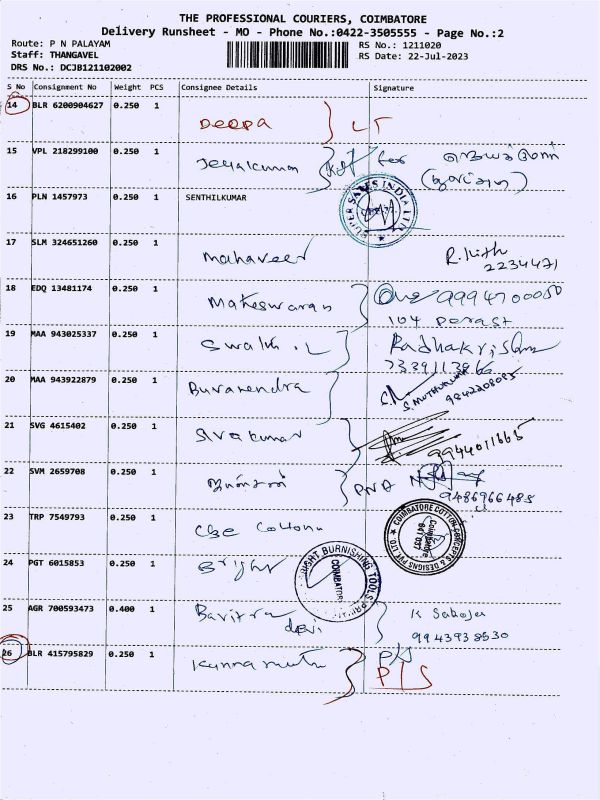 THE PROFESSIONAL COURIERS, COIMBATORE
Delivery Runsheet - MO - Phone No.:0422-3505555 - Page No.:2
Route: P N PALAYAM
RS No.: 1211020
Staff: THANGAVEL
RS Date: 22-Jul-2023
DRS No.: DCJB121102002
S No Consignment No Weight PCS Consignee Details Signature
14 BLR 6200904627 0.250 1 Deepa LT
15 VPL 218299100 0.250 1 Jeyakumar for
16 PLN 1457973 0.250 1 SENTHILKUMAR
SUPER SALES INDIA LTD
17 SLM 324651260 0.250 1 Mahaveer
2234471
18 EDQ 13481174 0.250 1 Maheswaran
104
19 MAA 943025337 0.250 1 Radhakrishnan
20 MAA 943922879 0.250 1 Buvanendra
S. MUTHUKUMAR
9842208085
21 SVG 4615402 0.250 1 Sivakumar 9944011665
22 SVM 2659708 0.250 1
9486966485
23 TRP 7549793 0.250 1 Cbe Cottons
COIMBATORE COTTON CONCEPTS & DESIGNS PVT. LTD.
Coimbatore
641 037
24 PGT 6015853 0.250 1 Bright
BRIGHT BURNISHING TOOLS
COIMBATORE
25 AGR 700593473 0.400 1 Bavitra devi
9943938530
26 BLR 415795829 0.250 1 P/S
P/S